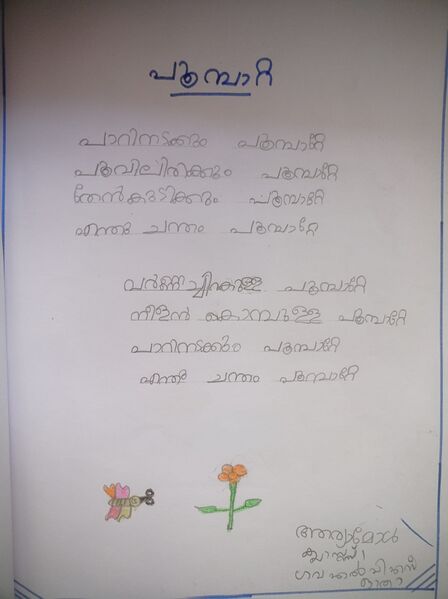 പൂമ്പാറ്റ
പാറിനടക്കും പൂമ്പാറ്റേ
പൂവിലിരിക്കും പൂമ്പാറ്റേ
തേൻകുടിക്കും പൂമ്പാറ്റേ
എന്തു ചന്തം പൂമ്പാറ്റേ
വർണ്ണച്ചിറകുള്ള പൂമ്പാറ്റേ
നീളൻ കൊമ്പുള്ള പൂമ്പാറ്റേ
പാറിനടക്കും പൂമ്പാറ്റേ
എന്തു ചന്തം പൂമ്പാറ്റേ
ക്ലാസ്സ് 1
ഗവ എൽ പി എസ്